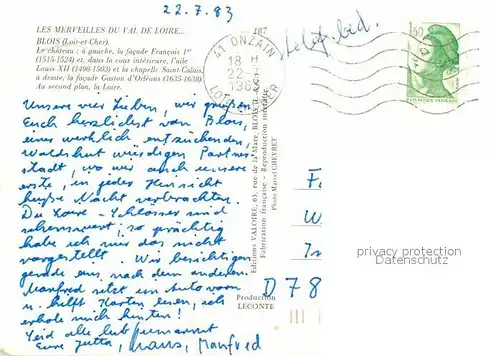 22.7.83
LES MERVEILLES DU VAL DE LOIRE...
187
BLOIS (Loir-et-Cher).
Le château : à gauche, la façade François 1er
(1515-1524) et dans la cour intérieure, l'aile
Louis XII (1498-1503) et la chapelle Saint-Calais,
à droite, la façade Gaston d'Orléans (1635-1638).
Au second plan, la Loire.
41 ONZAIN
18 H
22-
LOIR
1,60
RÉPUBLIQUE FRANÇAISE
Unsere vier Lieben, wir grüßen
Euch herzlichst von Blois,
einer wirklich entzückenden,
Waldshut würdigen Partner-
stadt, wo wir auch unsere
erste, in jeder Hinsicht
heiße Nacht verbrachten.
Die Loire-Schlösser sind
sehenswert; so prächtig
habe ich mir das nicht
vorgestellt. Wir besichtigen
gerade eins nach dem anderen.
Manfred sitzt im Auto vorn
u. hilft Karten lesen, ich
erhole mich hinten!
Seid alle lieb umarmt
Eure Jutta, Hans, Manfred
Editions VALOIRE, 63, rue de la Mare, BLOIS
Fabrication française - Reproduction interdite
Photo Marcel CHEVRET
Production
LECONTE
F
W
D 78
privacy protection
Datenschutz